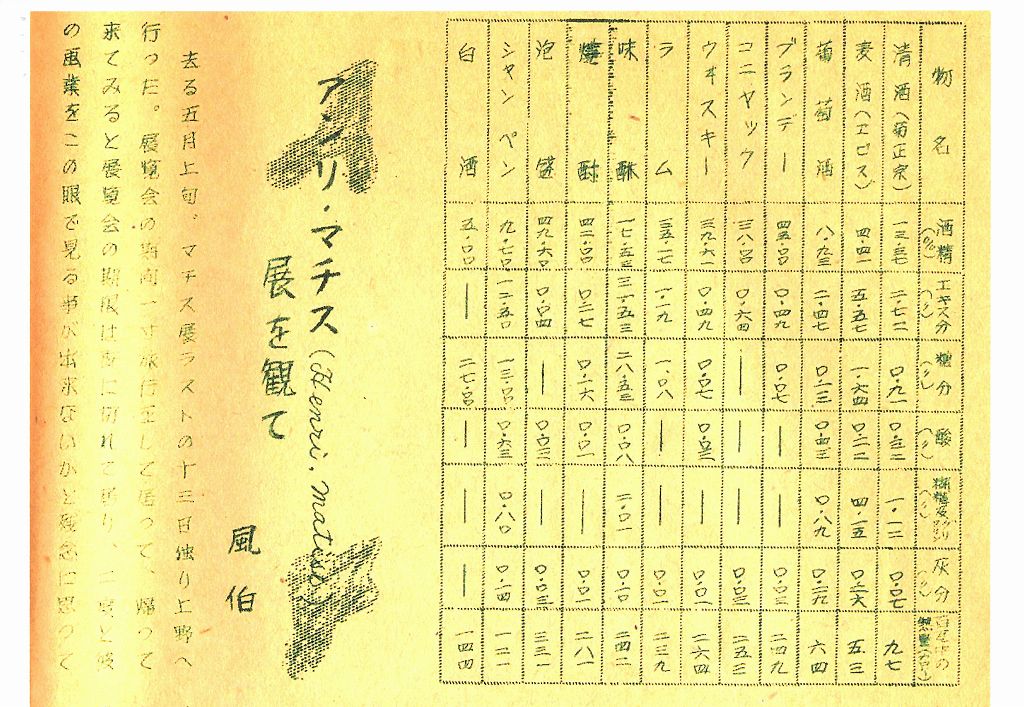 物名 酒精(%) エキス分(〃) 糖分(〃) 酸(〃) 灰分(〃)
清酒(菊正宗) 一三・三七 二・七二 〇・九一 〇・三二 一・一二 〇・〇七 九七
麦酒(エビス) 四・四一 五・五七 一・六四 〇・二二 四・一五 〇・二六 五三
葡萄酒 八・九三 二・四七 〇・二三 〇・四三 〇・八九 〇・二九 六四
ブランデー 四五・〇〇 〇・四九 〇・〇七 — — 〇・〇三 二四九
コニヤック 三八・〇〇 〇・六四 — — — 〇・〇三 二五三
ウヰスキー 三九・六一 〇・四九 〇・〇七 〇・〇三 — 〇・〇一 二六四
ラム 三五・一七 一・一九 一・〇八 — — 〇・〇一 二三九
味醂 一七・五三 三一・五三 二八・五三 〇・〇八 二・〇一 〇・一〇 二四二
焼酎 四二・〇〇 〇・二七 〇・二六 〇・〇一 — 〇・〇一 二八一
泡盛 四九・六〇 〇・〇四 — 〇・〇三 — 〇・〇三 三三一
シャンペン 九・七〇 一二・五〇 一三・〇〇 〇・六三 〇・八〇 〇・一四 一二一
白酒 五・〇〇 — 二七・〇〇 — — — 一四四
アンリ・マチス(Henri.matisse)
展を観て
風伯
去る五月上旬、マチス展ラストの十三日独り上野へ
行った。展覧会の期間一寸旅行をして居って、帰って
来てみると展覧会の期限は既に切れて居り、二度と彼
の画業をこの眼で見る事が出来ないかと残念に思って